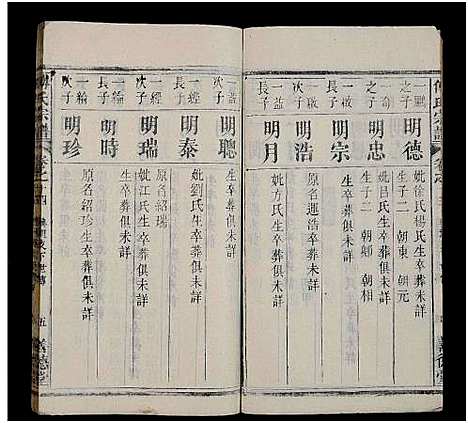 氏宗譜
一鵬之子
明德
妣徐氏楊氏生卒葬俱未詳
生子二 朝東 朝元
一奇之子
明忠
妣呂氏生卒葬俱未詳
生子二 朝卿 朝相
一啟長子
明宗
生卒葬俱未詳
一啟次子
明浩
原名運浩生卒葬俱未詳
一益長子
明月
妣方氏生卒葬俱未詳
義德堂
一益次子
明聰
生卒葬俱未詳
一經長子
明泰
妣劉氏生卒葬俱未詳
一經次子
明瑞
原名紹瑞
妣江氏生卒葬俱未詳
一綸長子
明時
生卒葬俱未詳
一綸次子
明珍
原名紹珍生卒葬俱未詳
氏宗譜
卷之十四
五
義德堂